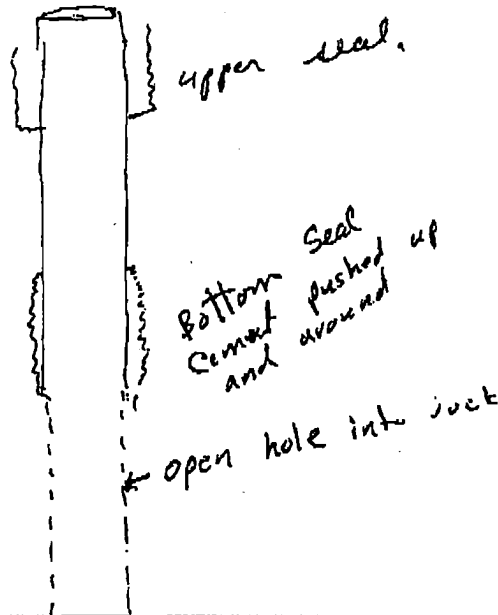 upper seal.
Bottom Seal
Cement pushed up
and around
open hole into rock